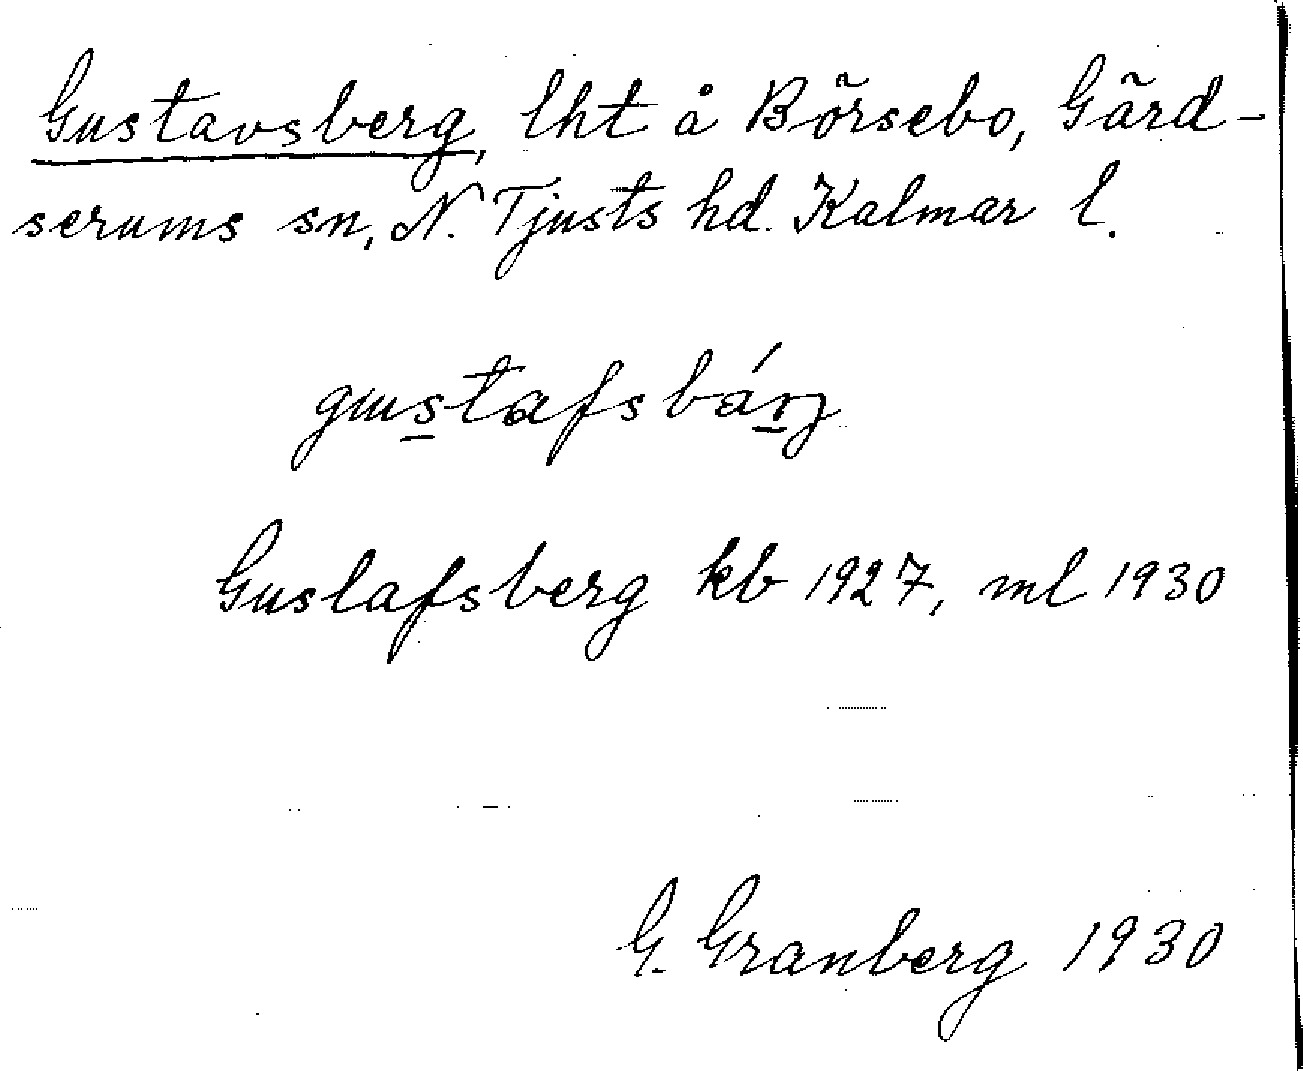 Gustavsberg, lht å Börsebo, Gärd-
serums sn, N. Tjusts hd. Kalmar l.
gustafsbárj
Gustafsberg kb 1927, ml 1930
G. Granberg 1930